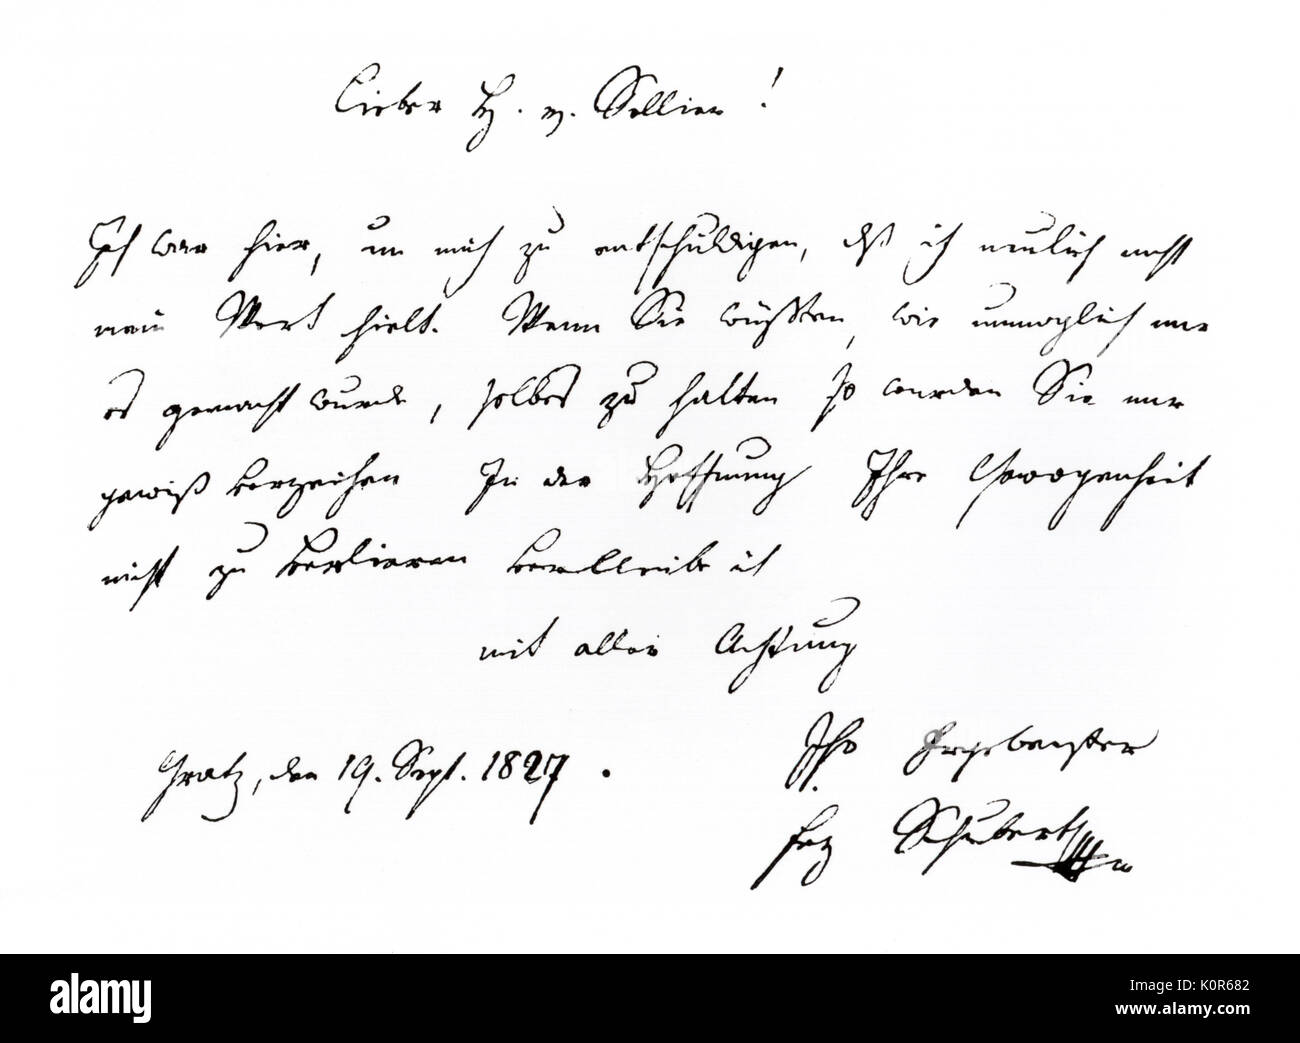 Lieber H. v. Sellier!
Ich war hier, um mich zu entschuldigen, dß ich neulich nicht
mein Wort hielt. Wenn Sie wüßten, wie unmöglich mir
es gemacht wurde, selbes zu halten so würden Sie mir
gewiß verzeihen In der Hoffnung Ihre Gewogenheit
nicht zu verlieren verbleibe ich
mit aller Achtung
Ihr Ergebenster
Gratz, den 19. Sept. 1827.
Frz Schubert
alamy stock photo
K0R682
www.alamy.com